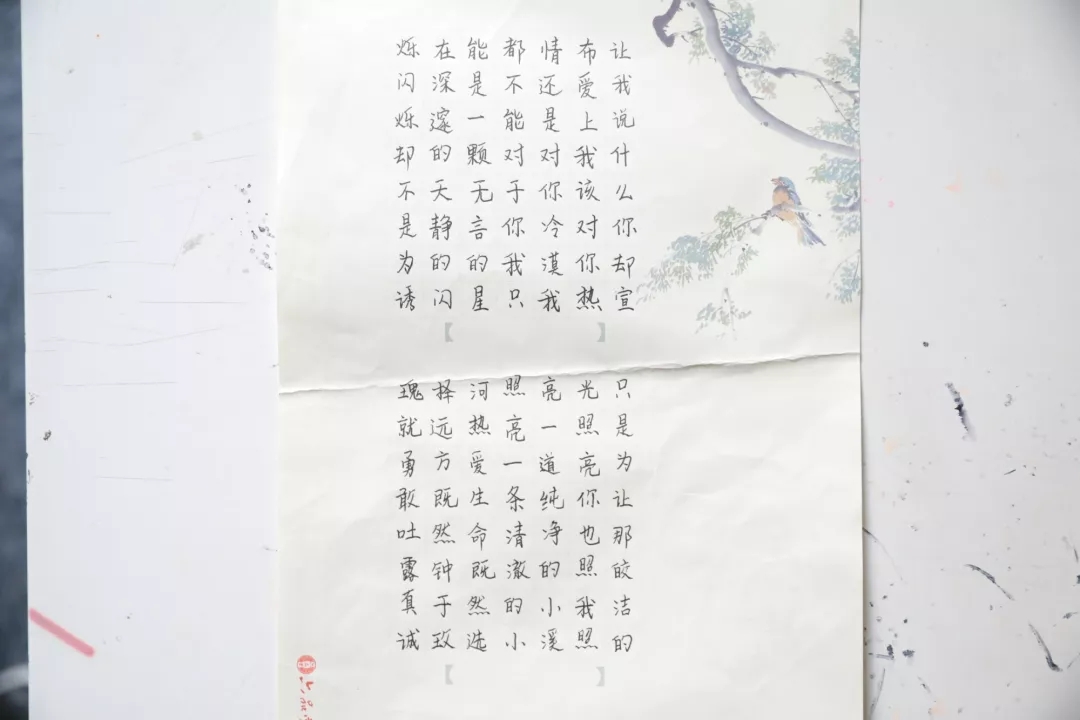 让我说什么你却宣
布爱上我该对你热
情还是对你冷漠我
都不能对于你我只
能是一颗无言的星
在深邃的天静的闪
烁闪烁却不是为诱
只是为让那皎洁的
光照亮你也照我照
亮一道纯净的小溪
照亮一条清澈的小
河热爱生命既然选
择远方既然钟于玫
瑰就勇敢吐露真诚